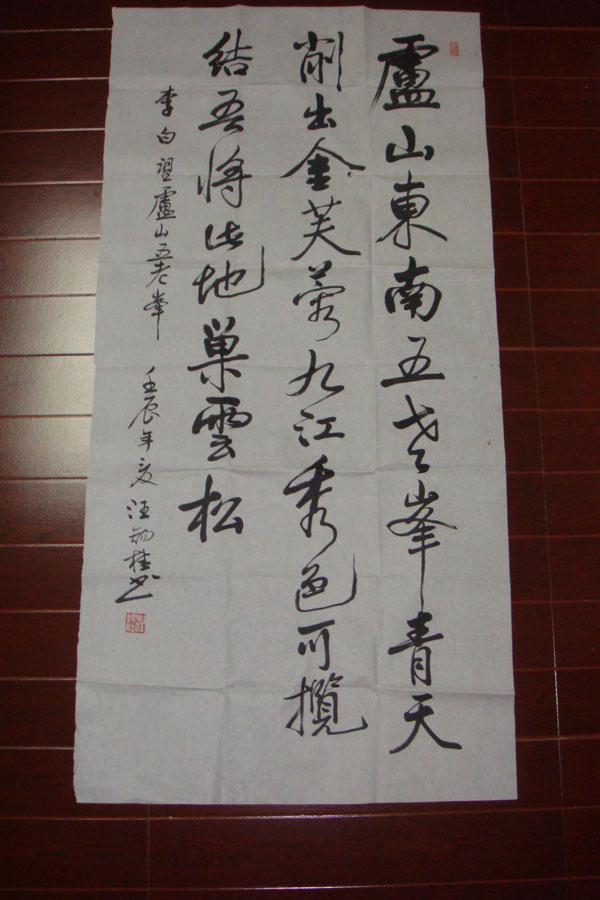 盧山東南五老峯青天
削出金芙蓉九江秀色可攬
結吾將此地巢雲松
李白望盧山五老峯 壬辰年夏 汪桂书